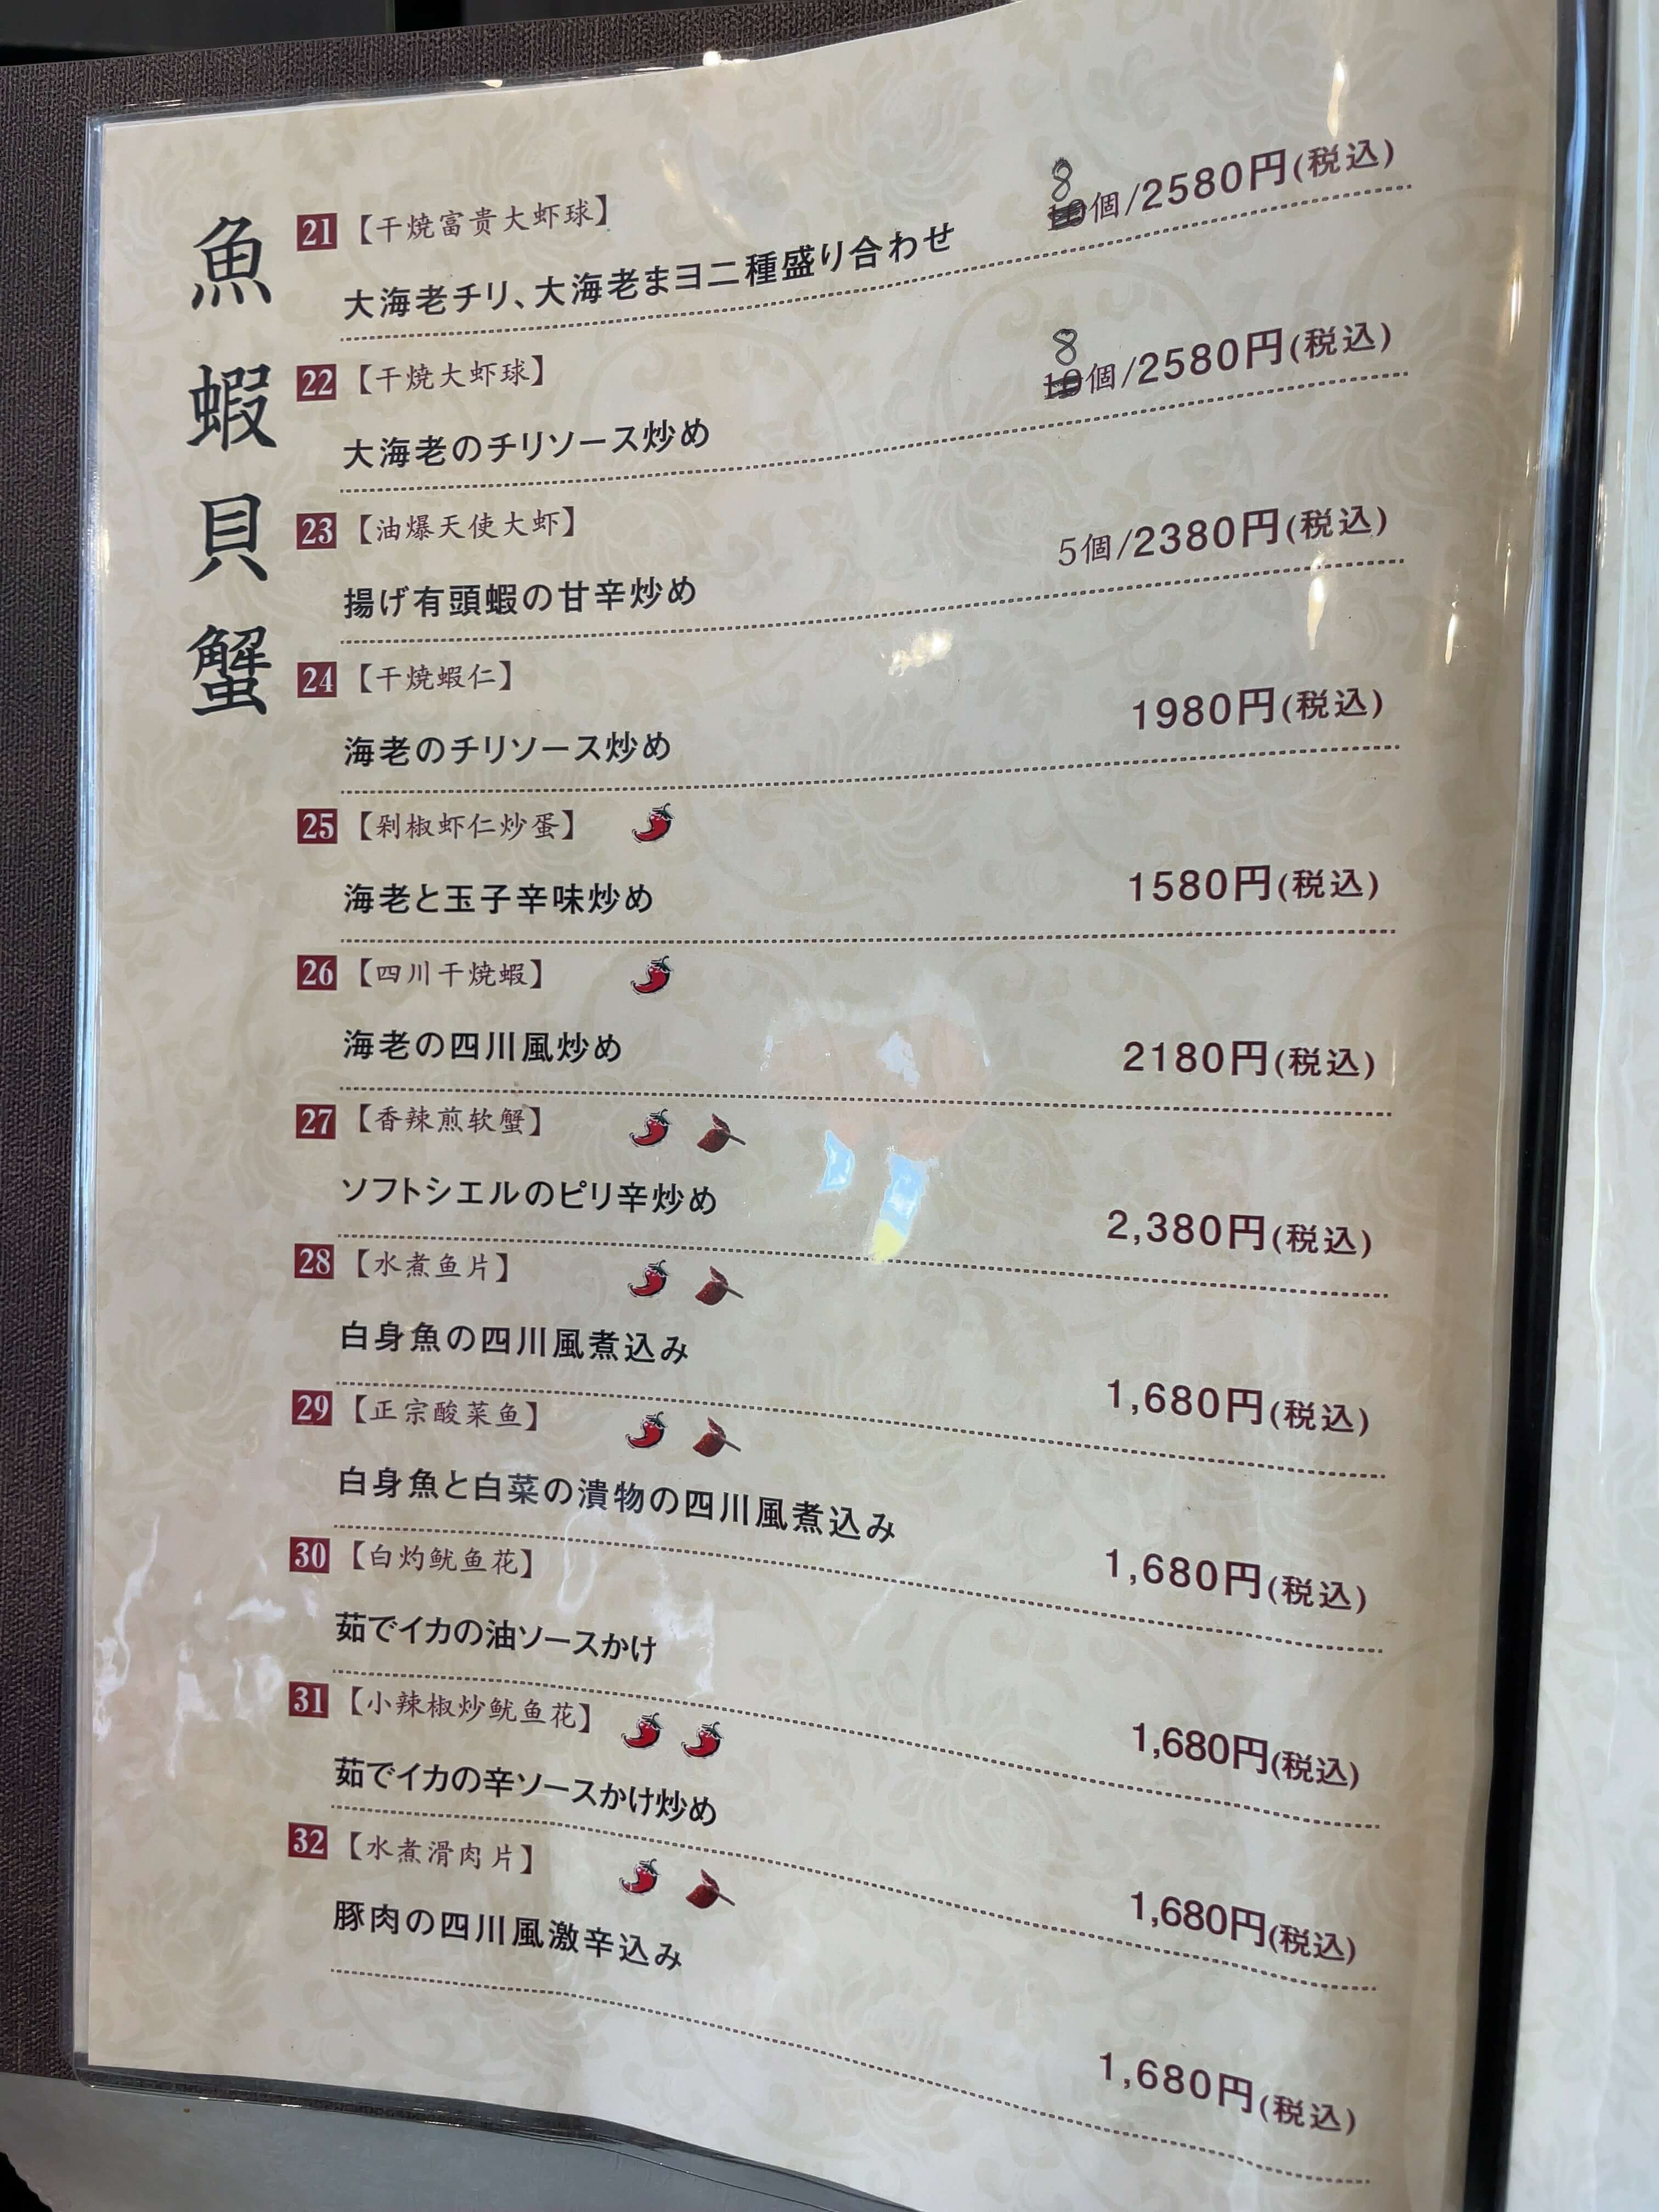 魚蝦貝蟹
21 【干焼富贵大虾球】
8
10個/2580円(税込)
大海老チリ、大海老まヨ二種盛り合わせ
22 【干焼大虾球】
8
10個/2580円(税込)
大海老のチリソース炒め
23 【油爆天使大虾】
5個/2380円(税込)
揚げ有頭蝦の甘辛炒め
24 【干焼蝦仁】
1980円(税込)
海老のチリソース炒め
25 【剁椒虾仁炒蛋】
1580円(税込)
海老と玉子辛味炒め
26 【四川干焼蝦】
2180円(税込)
海老の四川風炒め
27 【香辣煎软蟹】
ソフトシエルのピリ辛炒め
2,380円(税込)
28 【水煮鱼片】
白身魚の四川風煮込み
1,680円(税込)
29 【正宗酸菜鱼】
白身魚と白菜の漬物の四川風煮込み
1,680円(税込)
30 【白灼鱿鱼花】
茹でイカの油ソースかけ
1,680円(税込)
31 【小辣椒炒鱿鱼花】
茹でイカの辛ソースかけ炒め
1,680円(税込)
32 【水煮滑肉片】
豚肉の四川風激辛込み
1,680円(税込)